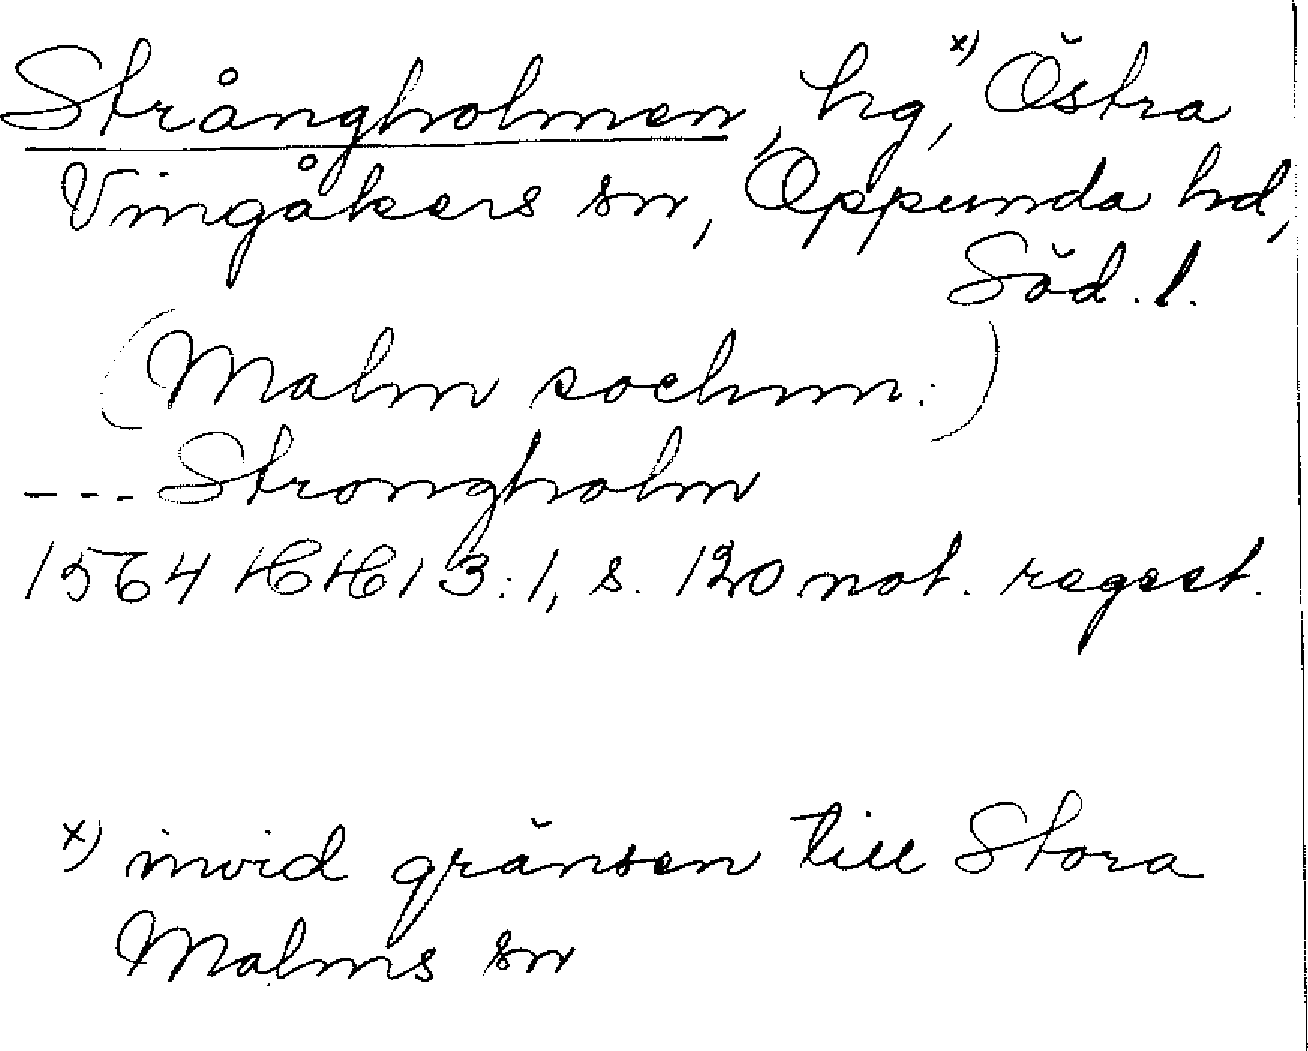 Strångholmen, hg,ˣ⁾ Östra
Vingåkers sn, Oppunda hd,
Söd. l.
(Malm sochnn:)
--- Strongholm
1564 HH 13:1, s. 120 not. regest.
x) invid gränsen till Stora
Malms sn